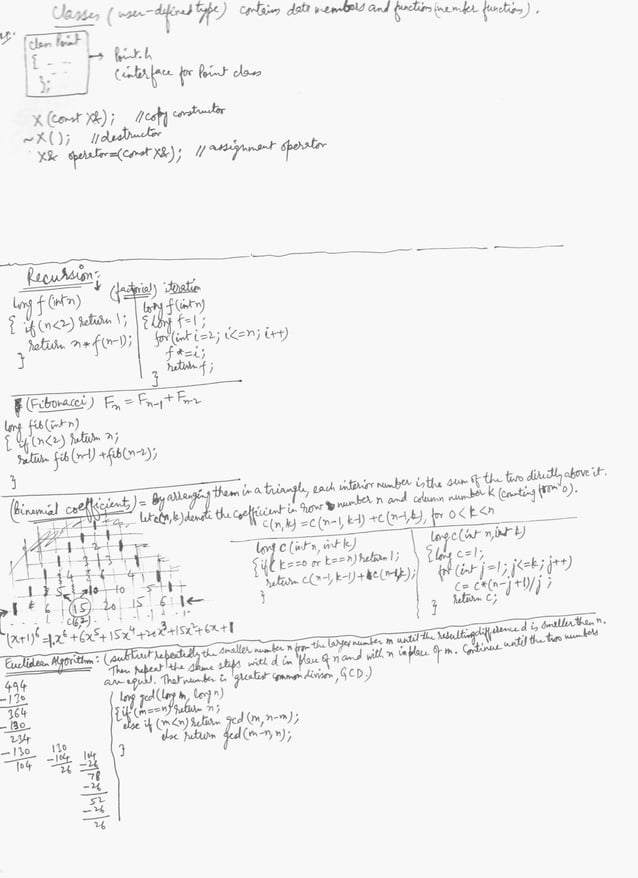 Classes (user-defined type) contains data members and function (member function).
class Point
{ - -
- -
};
→ Point.h
(interface for Point class
X (const X&); //copy constructor
~X(); //destructor
X& operator=(const X&); // assignment operator
Recursion:
(factorial) iteration
long f(int n)
{ if(n<2) return 1;
return n * f(n-1);
}
long f(int n)
{ long f=1;
for(int i=2; i<=n; i++)
f*=i;
return f;
}
(Fibonacci) Fn = Fn-1 + Fn-2
long fib(int n)
{ if(n<2) return n;
return fib(n-1)+fib(n-2);
}
(Binomial coefficients) = By arranging them in a triangle, each interior number is the sum of the two directly above it.
let c(n,k) denote the coefficient in row number n and column number k (counting from 0).
c(n,k) = c(n-1, k-1) + c(n-1,k), for 0<k<n
1 6 15 20 15 6 1
c(6,2)
long c(int n, int k)
{ if(k==0 or k==n) return 1;
return c(n-1,k-1)+c(n-1,k);
}
long c(int n, int k)
{ long c=1;
for (int j=1; j<=k; j++)
c= c*(n-j+1)/j;
return c;
}
(x+1)^6 = 1x^6+6x^5+15x^4+20x^3+15x^2+6x+1
Euclidean Algorithm: (subtract repeatedly the smaller number n from the larger number m until the resulting difference d is smaller than n.
Then repeat the same steps with d in place of n and with n in place of m. Continue until the two numbers
are equal. That number is greatest common divison, GCD.)
494
-130
364
-130
234
-130
104
130
-104
26
104
-26
78
-26
52
-26
26
long gcd(long m, long n)
{ if(m==n) return n;
else if (m<n) return gcd(m, n-m);
else return gcd(m-n,n);
}